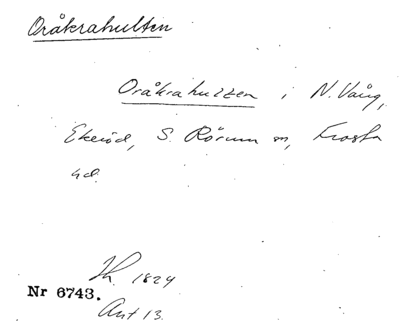 Oråkrahulten
Oråkrahulten i N. Vång,
Ekeröd, S. Rörum sn, Frosta
hd.
1824
Nr 6743.
Ant 13.